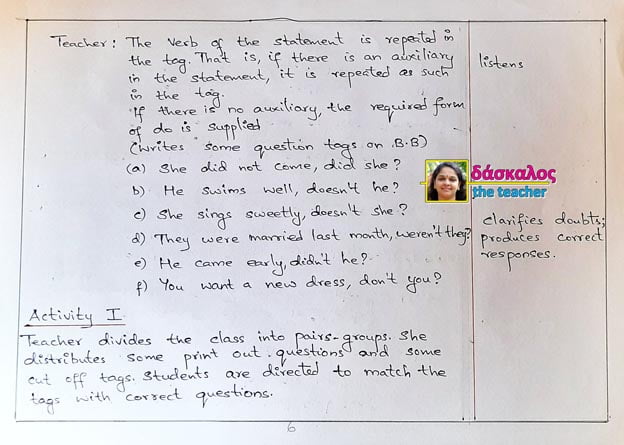 Teacher: The verb of the statement is repeated in
the tag. That is, if there is an auxiliary
in the statement, it is repeated as such
in the tag.
If there is no auxiliary, the required form
of do is supplied
(Writes some question tags on B.B)
(a) She did not come, did she?
b) He swims well, doesn't he?
c) She sings sweetly, doesn't she?
d) They were married last month, weren't they?
e) He came early, didn't he?
f) You want a new dress, don't you?
listens
δάσκαλος
the teacher
clarifies doubts;
produces correct
responses.
Activity I
Teacher divides the class into pairs-groups. She
distributes some print out questions and some
cut off tags. Students are directed to match the
tags with correct questions.
6